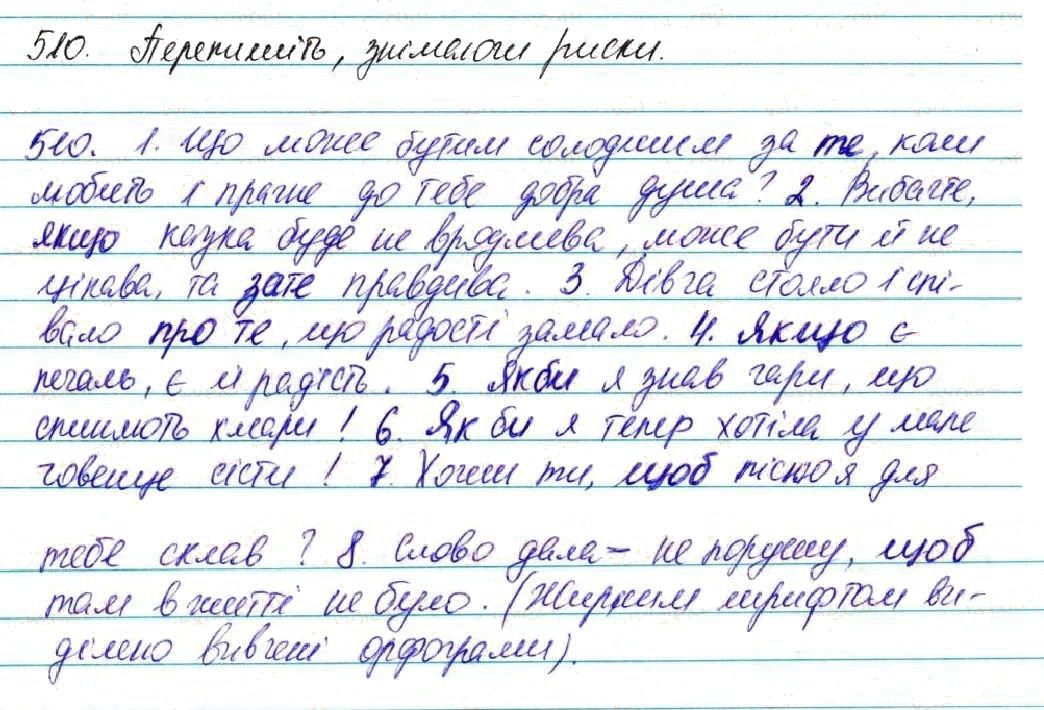 510. Перепишіть, знімаючи риски.
510. 1. Що може бути солодшим за те, коли
любить і прагне до тебе добра душа? 2. Вибачте,
якщо казка буде не вродлива, може бути й не
цікава, та зате правдива. 3. Дівча стояло і спі-
вало про те, що радості замало. 4. Якщо є
печаль, є й радість. 5. Якби я знав чари, що
спиняють хмари! 6. Як би я тепер хотіла у мале
човенце сісти! 7. Хочеш ти, щоб пісню я для
тебе склав? 8. Слово дала – не порушу, щоб
там в житті не було. (Жирним шрифтом ви-
ділено вивчені орфограми).